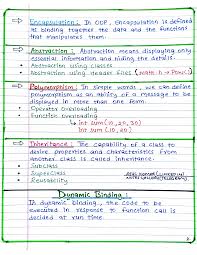 Encapsulation : In OOP, Encapsulation is defined
as binding together the data and the functions
that manipulates them.
Abstraction : Abstraction means displaying only
essential information and hiding the details.
Abstraction using classes
Abstraction using Header files (math.h → pow())
Polymorphism : In simple words, we can define
polymorphism as an ability of a message to be
displayed in more than one form.
Operator Overloading
Function Overloading
int sum(10, 20, 30)
int sum(10, 20)
Inheritance : The capability of a class to
derive properties and characteristics from
another class is called Inheritance.
Subclass
Superclass
Reusability
Dynamic Binding :
In dynamic binding, the code to be
executed in response to function call is
decided at run time.